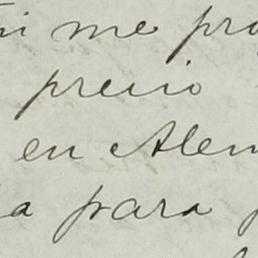 mi me pro
precio
en Alem
a para